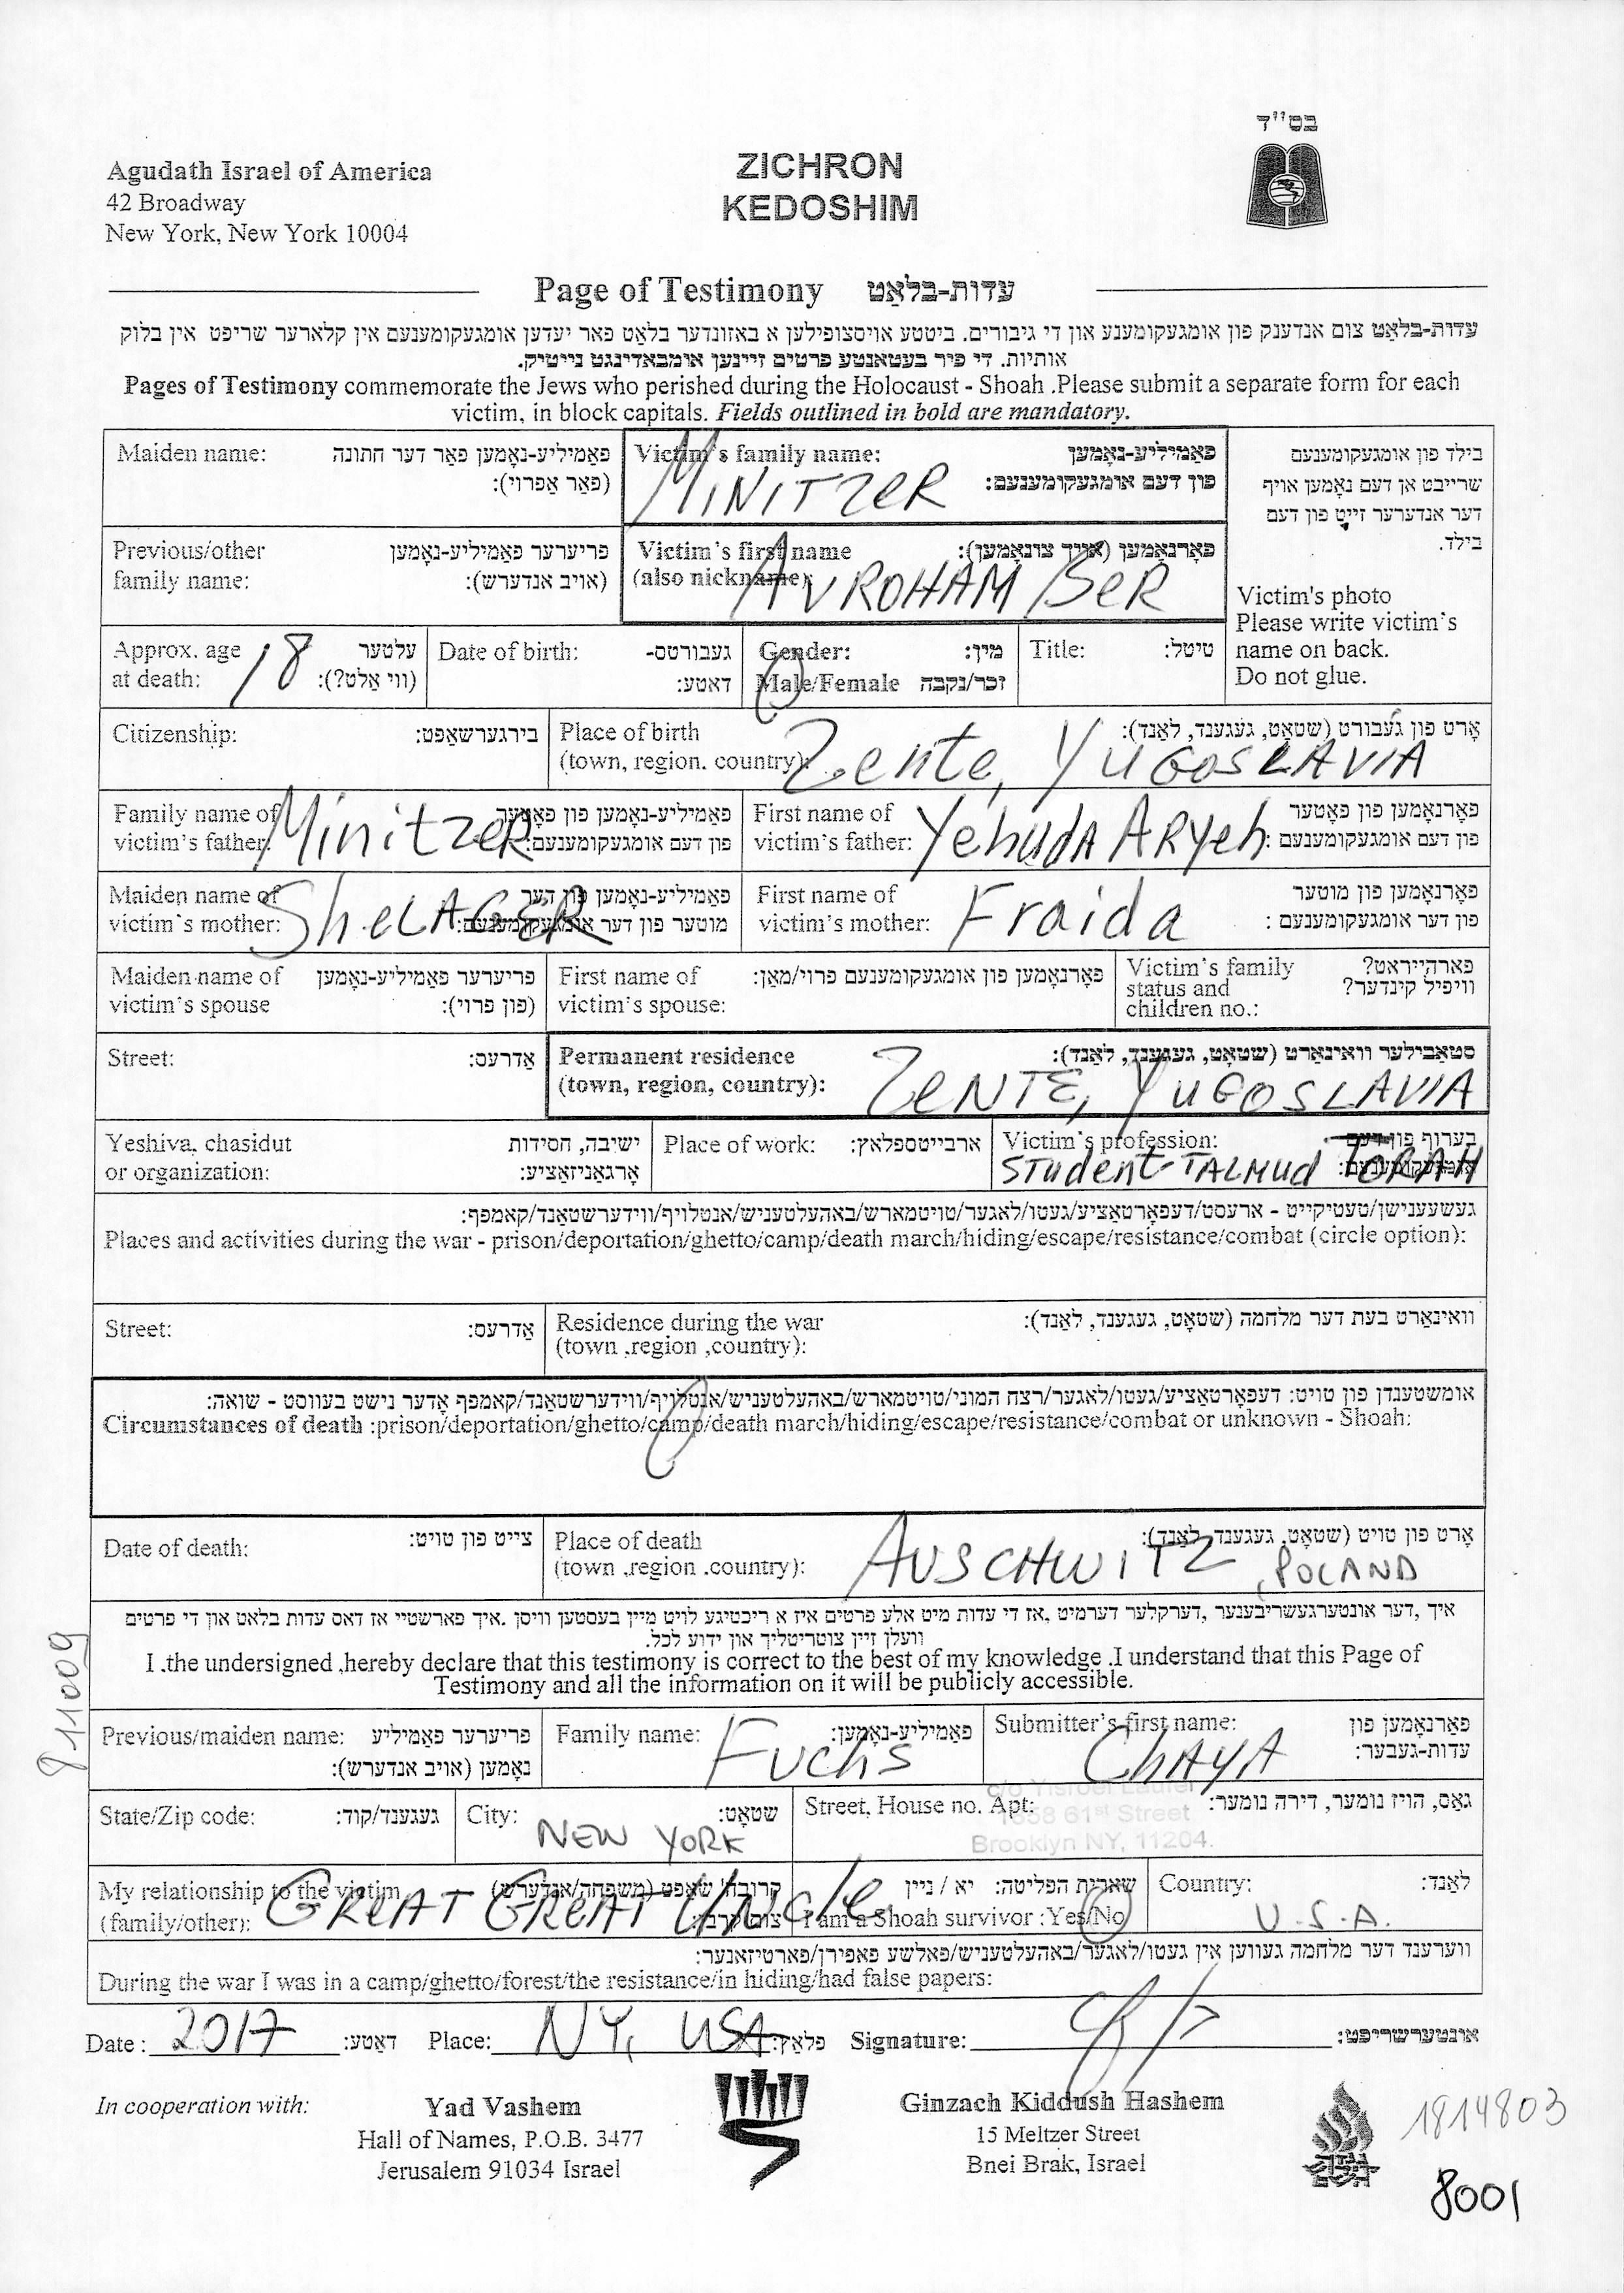 בס"ד
Agudath Israel of America
42 Broadway
New York, New York 10004
ZICHRON
KEDOSHIM
Page of Testimony עדות-בלאַט
עדות-בלאַט צום אנדענק פון אומגעקומענע און די גיבורים. ביטטע אויסצופילען א באזונדער בלאט פאר יעדען אומגעקומענעם אין קלארער שריפט אין בלוק
אותיות. די פיר בעטאנטע פרטים זיינען אומבאדינגט נייטיק.
Pages of Testimony commemorate the Jews who perished during the Holocaust - Shoah .Please submit a separate form for each
victim, in block capitals. Fields outlined in bold are mandatory.
Maiden name: פאַמיליע-נאָמען פאר דער חתונה
(פאר אַפרוי):
Victim's family name: פאַמיליע-נאָמען
פון דעם אומגעקומענעם:
MINITZER
בילד פון אומגעקומענעם
שרייבט אן דעם נאָמען אויף
דער אנדערער זייט פון דעם
בילד.
Victim's photo
Please write victim's
name on back.
Do not glue.
Previous/other פריערער פאַמיליע-נאָמען
family name: (אויב אנדערש):
Victim's first name פאָרנאָמען (אויך צונאָמען):
(also nickname):
AVROHAM BER
Approx. age עלטער
at death: (ווי אַלט?):
18
Date of birth: געבורטס-
דאטע:
Gender: מין:
Male/Female זכר/נקבה
Title: טיטל:
Citizenship: בירגערשאַפט:
Place of birth אָרט פון געבורט (שטאָט, געגענד, לאַנד):
(town, region. country):
Zente, YUGOSLAVIA
Family name of פאַמיליע-נאָמען פון פאָטער
victim's father: פון דעם אומגעקומענעם:
Minitzer
First name of פאָרנאָמען פון פאָטער
victim's father: פון דעם אומגעקומענעם:
Yehuda Aryeh
Maiden name of פאַמיליע-נאָמען פון דער
victim's mother: מוטער פון דער אומגעקומענעם:
SheLAGER
First name of פאָרנאָמען פון מוטער
victim's mother: פון דער אומגעקומענעם :
Fraida
Maiden name of פריערער פאַמיליע-נאָמען
victim's spouse (פון פרוי):
First name of פאָרנאָמען פון אומגעקומענעם פרוי/מאַן:
victim's spouse:
Victim's family פארהייראט?
status and וויפיל קינדער?
children no.:
Street: אַדרעס:
Permanent residence סטאַבילער וואינאַרט (שטאָט, געגענד, לאַנד):
(town, region, country):
ZENTE, YUGOSLAVIA
Yeshiva, chasidut ישיבה, חסידות
or organization: אָרגאַניזאַציע:
Place of work: ארבייטספלאץ:
Victim's profession: בערוף פון דעם
אומגעקומענעם:
Student TALMUD TORAH
געשעענישן/טעטיקייט - ארעסט/דעפאָרטאַציע/געטו/לאגער/טויטמארש/באהעלטעניש/אנטלויף/ווידערשטאַנד/קאמפף:
Places and activities during the war - prison/deportation/ghetto/camp/death march/hiding/escape/resistance/combat (circle option):
Street: אַדרעס:
Residence during the war וואינאַרט בעת דער מלחמה (שטאָט, געגענד, לאַנד):
(town ,region ,country):
אומשטענדן פון טויט: דעפאָרטאַציע/געטו/לאגער/רצח המוני/טויטמארש/באהעלטעניש/אנטלויף/ווידערשטאַנד/קאמפף אָדער נישט בעוואוסט - שואה:
Circumstances of death :prison/deportation/ghetto/camp/death march/hiding/escape/resistance/combat or unknown - Shoah:
Date of death: צייט פון טויט:
Place of death אָרט פון טויט (שטאָט, געגענד, לאַנד):
(town ,region .country):
AUSCHWITZ, POLAND
איך ,דער אונטערגעשריבענער ,דערקלער דערמיט ,אז די עדות מיט אלע פרטים איז א ריכטיגע לויט מיין בעסטען וויסן .איך פארשטיי אז דאס עדות בלאט און די פרטים
וועלן זיין צוטריטליך און ידוע לכל.
I .the undersigned ,hereby declare that this testimony is correct to the best of my knowledge .I understand that this Page of
Testimony and all the information on it will be publicly accessible.
811009
Previous/maiden name: פריערער פאַמיליע
נאָמען (אויב אנדערש):
Family name: פאַמיליע-נאָמען:
Fuchs
Submitter's first name: פאַרנאָמען פון
עדות-געבער:
CHAYA
State/Zip code: געגענד/קוד:
City: שטאָט:
NEW YORK
Street, House no. Apt: גאַס, הויז נומער, דירה נומער:
c/o Yisroel Laufer
1658 61st Street
Brooklyn NY, 11204.
My relationship to the victim
(family/other):
GREAT GREAT UNCLE
שארית הפליטה: יא / ניין
I am a Shoah survivor :Yes/No
Country: לאַנד:
U.S.A.
ווערענד דער מלחמה געווען אין געטו/לאגער/באהעלטעניש/פאלשע פאפירן/פארטיזאנער:
During the war I was in a camp/ghetto/forest/the resistance/in hiding/had false papers:
Date : 2017 דאַטע: Place: NY, USA פלאַץ: Signature: אונטערשריפט:
In cooperation with:
Yad Vashem
Hall of Names, P.O.B. 3477
Jerusalem 91034 Israel
Ginzach Kiddush Hashem
15 Meltzer Street
Bnei Brak, Israel
1814803
8001